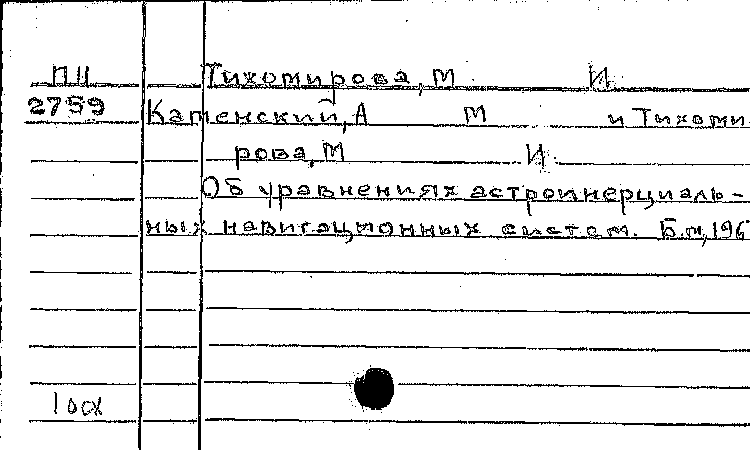 ПИ Тихомирова, М И
2759 Каменский, А М и Тихоми-
рова, М И.
Об уравнениях астроинерциаль-
ных навигационных систем. Б.м, 196